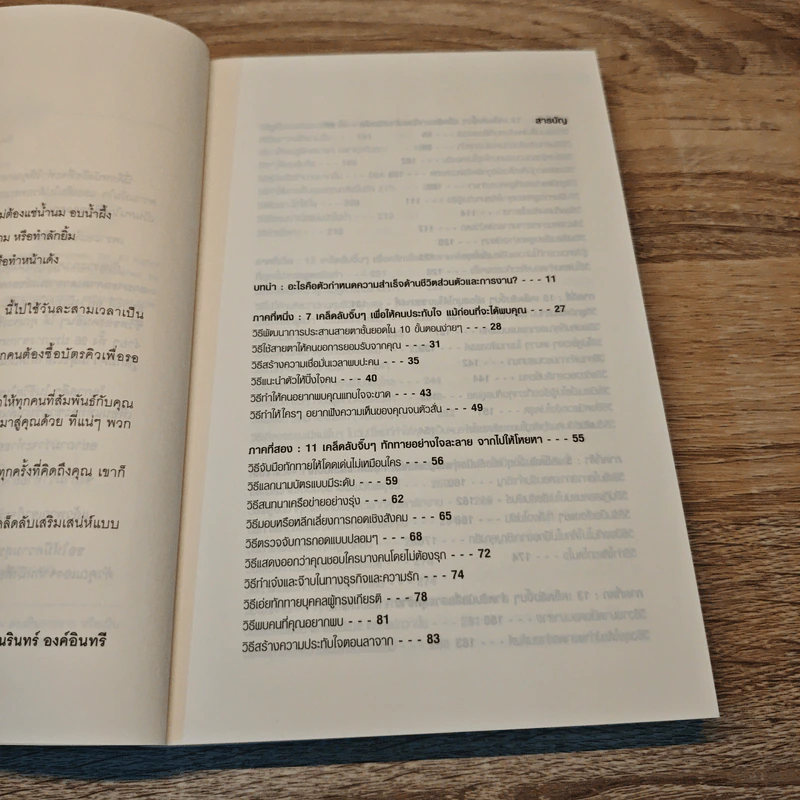 ม่ต้องแช่น้ำนม อบน้ำผึ้ง
าม หรือทำลักยิ้ม
รือทำหน้าเด้ง
นี้ไปใช้วันละสามเวลาเป็น
ุกคนต้องซื้อบัตรคิวเพื่อรอ
ให้ทุกคนที่สัมพันธ์กับคุณ
มาสู่คุณด้วย ที่แน่ๆ พวก
ทุกครั้งที่คิดถึงคุณ เขาก็
คล็ดลับเสริมเสน่ห์แบบ
นรินทร์ องค์อินทรี
สารบัญ
บทนำ : อะไรคือตัวกำหนดความสำเร็จด้านชีวิตส่วนตัวและการงาน? - - - 11
ภาคที่หนึ่ง : 7 เคล็ดลับจิ๊บๆ เพื่อให้คนประทับใจ แม้ก่อนที่จะได้พบคุณ - - - 27
วิธีพัฒนาการประสานสายตาชั้นยอดใน 10 ขั้นตอนง่ายๆ - - - 28
วิธีใช้สายตาให้คนขอการยอมรับจากคุณ - - - 31
วิธีสร้างความเชื่อมั่นเวลาพบปะคน - - - 35
วิธีแนะนำตัวให้ปิ๊งใจคน - - - 40
วิธีทำให้คนอยากพบคุณแทบใจจะขาด - - - 43
วิธีทำให้ใครๆ อยากฟังความเห็นของคุณจนตัวสั่น - - - 49
ภาคที่สอง : 11 เคล็ดลับจิ๊บๆ ทักทายอย่างใจละลาย จากไปให้โหยหา - - - 55
วิธีจับมือทักทายให้โดดเด่นไม่เหมือนใคร - - - 56
วิธีแลกนามบัตรแบบมีระดับ - - - 59
วิธีสนทนาเครือข่ายอย่างรุ่ง - - - 62
วิธีมอบหรือหลีกเลี่ยงการกอดเชิงสังคม - - - 65
วิธีตรวจจับการกอดแบบปลอมๆ - - - 68
วิธีแสดงออกว่าคุณชอบใครบางคนโดยไม่ต้องรุก - - - 72
วิธีทำเจ๋งและจ๊าบในทางธุรกิจและความรัก - - - 74
วิธีเอ่ยทักทายบุคคลผู้ทรงเกียรติ - - - 78
วิธีพบคนที่คุณอยากพบ - - - 81
วิธีสร้างความประทับใจตอนลาจาก - - - 83